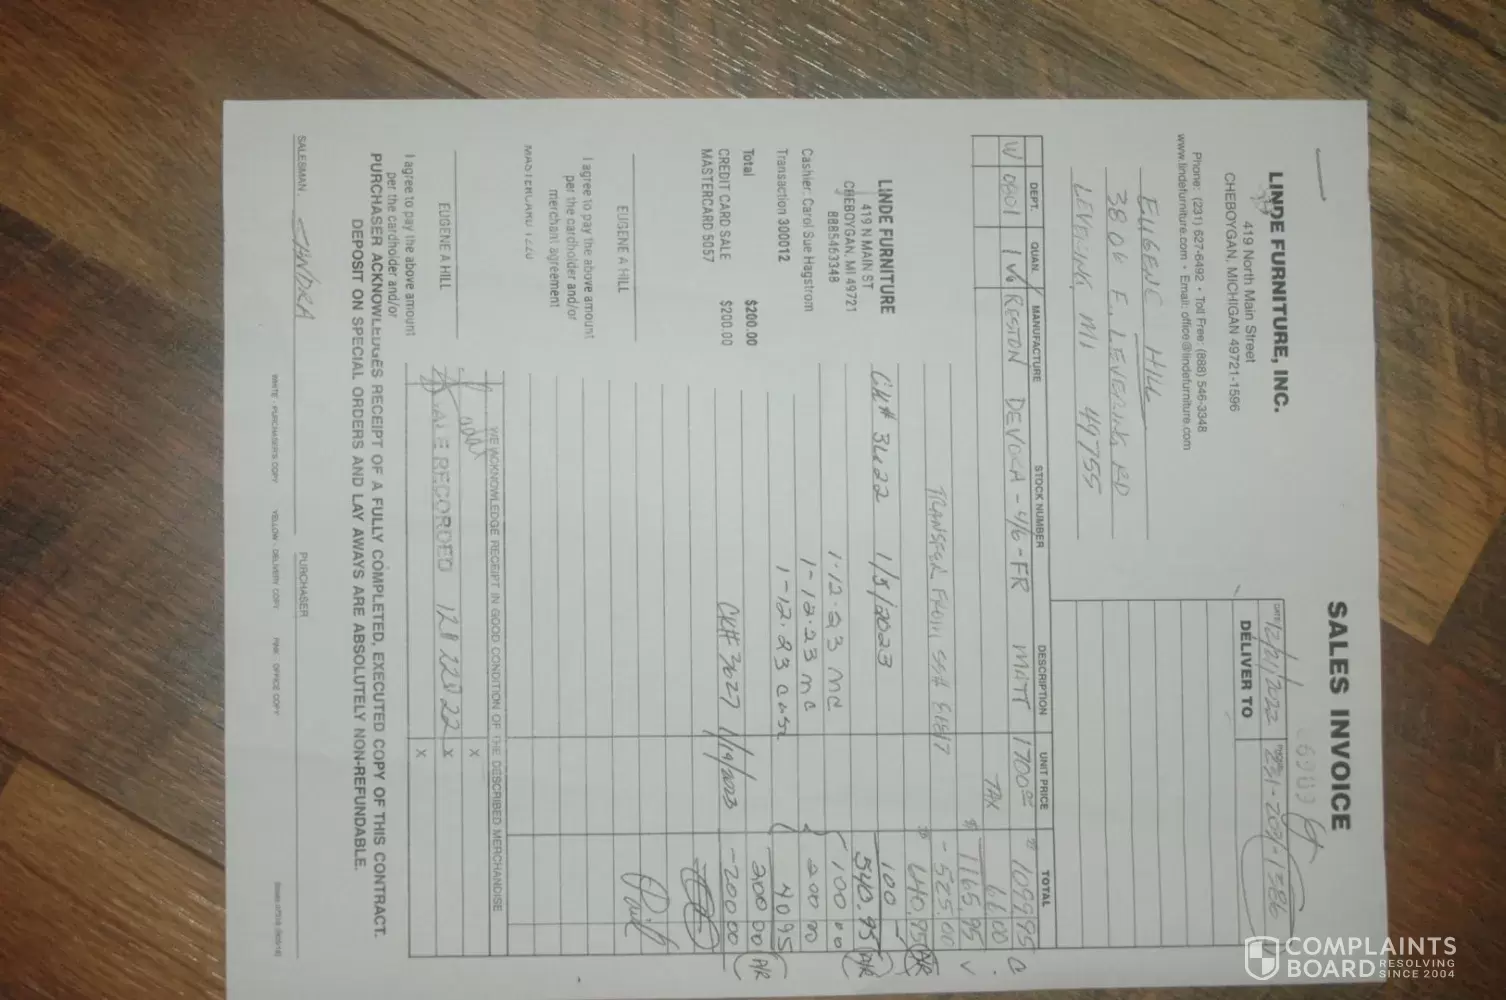 SALES INVOICE
LINDE FURNITURE, INC.
419 North Main Street
CHEBOYGAN, MICHIGAN 49721-1596
Phone: (231) 627-6492 • Toll Free: (888) 546-3348
www.lindefurniture.com • Email: office@lindefurniture.com
DATE 12/21/2022
DELIVER TO
EUGENE HILL
3806 E. LEVERING RD
LEVERING, MI 49755
DEPT. QUAN. MANUFACTURE STOCK NUMBER DESCRIPTION UNIT PRICE TOTAL
W 0801 1 RESTON DEVOKA-4/6-FR MATT 1700.00 1099.95
TAX 66.00
$ 1165.95
TRANSFER FROM - 525.00
$ 640.95 A/R
100
CK# 3622 1/5/2023 540.95 A/R
1-12-23 MC 100.00
1-12-23 MC 200.00
1-12-23 cash 40.95
200.00 A/R
CK# 3627 1/19/2023 -200.00
Paid
LINDE FURNITURE
419 N MAIN ST
CHEBOYGAN, MI 49721
8885463348
Cashier: Carol Sue Hagstrom
Transaction 300012
Total $200.00
CREDIT CARD SALE $200.00
MASTERCARD 5057
EUGENE A HILL
I agree to pay the above amount
per the cardholder and/or
merchant agreement
EUGENE A HILL
I agree to pay the above amount
per the cardholder and/or
WE ACKNOWLEDGE RECEIPT IN GOOD CONDITION OF THE DESCRIBED MERCHANDISE
X
SALE RECORDED 12/22/22 X
X
PURCHASER ACKNOWLEDGES RECEIPT OF A FULLY COMPLETED, EXECUTED COPY OF THIS CONTRACT.
DEPOSIT ON SPECIAL ORDERS AND LAY AWAYS ARE ABSOLUTELY NON-REFUNDABLE.
SALESMAN SANDRA PURCHASER
WHITE - PURCHASER'S COPY YELLOW - DELIVERY COPY PINK - OFFICE COPY
COMPLAINTS
BOARD RESOLVING
SINCE 2004